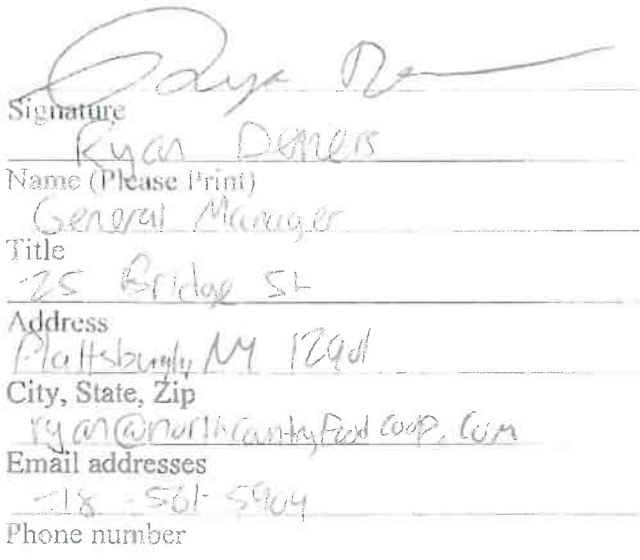 Signature
Ryan Demers
Name (Please Print)
General Manager
Title
25 Bridge St
Address
Plattsburgh, NY 12901
City, State, Zip
ryan@northcountryfoodcoop.com
Email addresses
-18-561-5904
Phone number